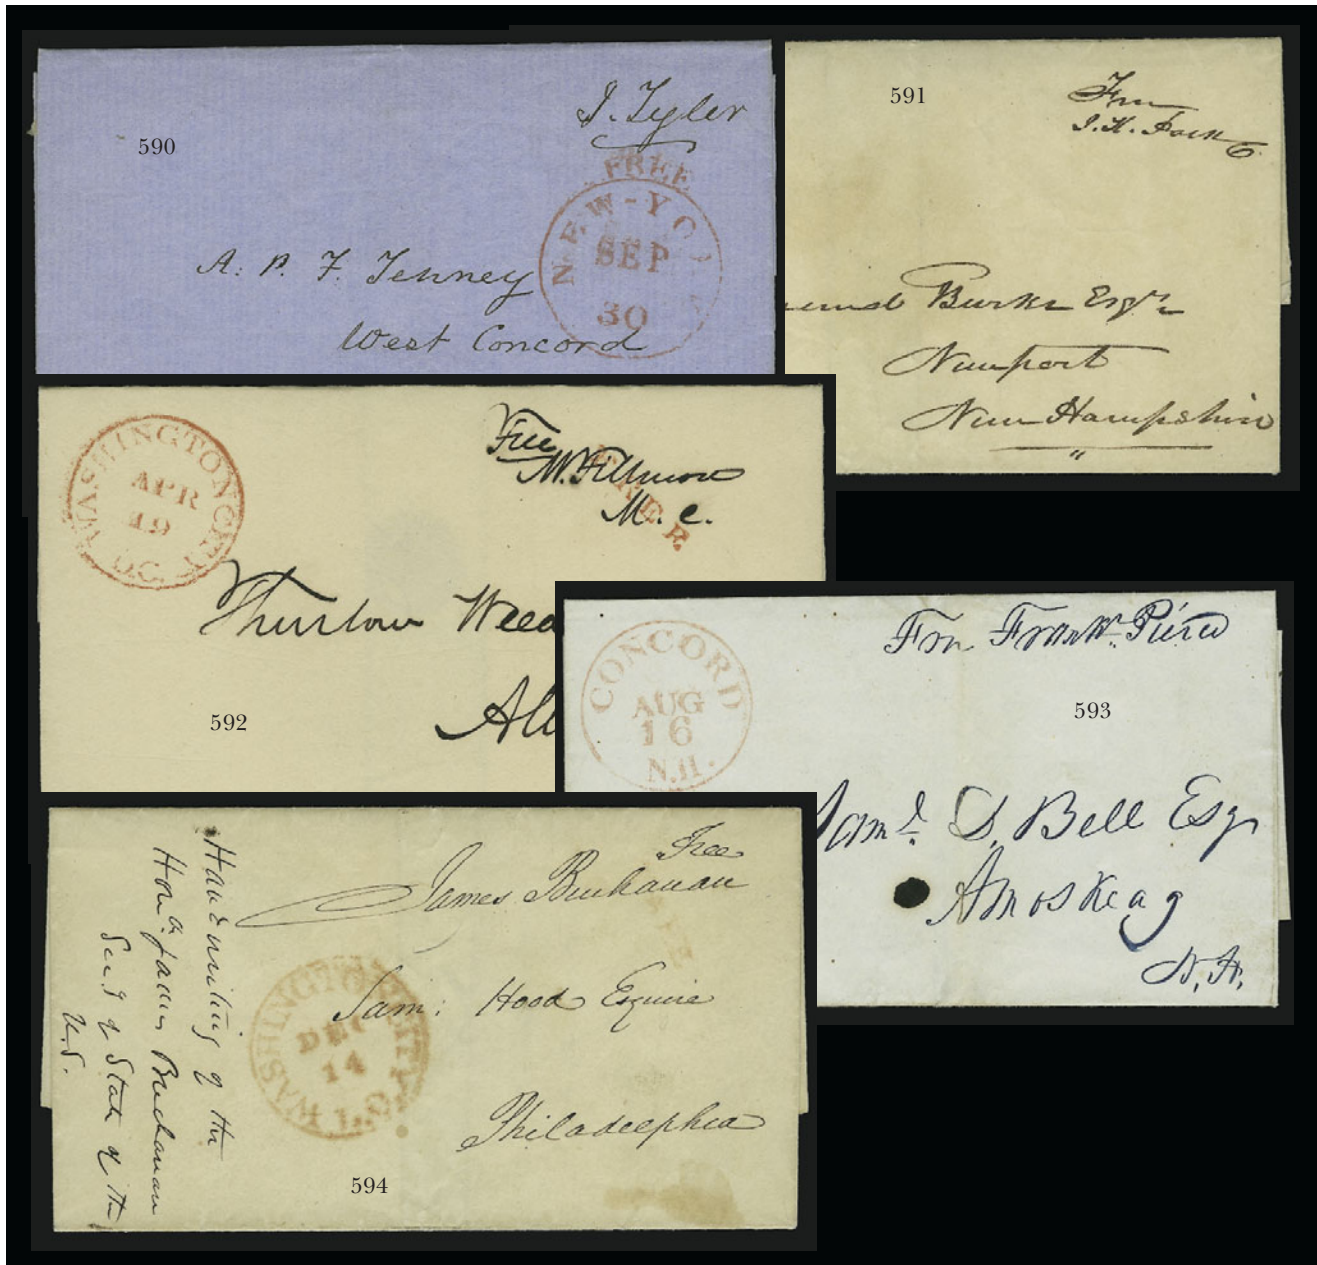 590
J. Tyler
FREE
NEW-YO
SEP
30
A. P. F. Tenney
West Concord
591
Free
J. K. Polk
mund Burke Esqr
Newport
New Hampshire
"
WASHINGTON CITY
APR
19
D.C.
Free
M. Fillmore
M. C.
FREE
Thurlow Weed
Alb
592
CONCORD
AUG
16
N.H.
Free Frankn. Pierce
593
Saml. D. Bell Esqr
Amoskeag
N. H.
Handwriting of the
Hon. James Buchanan
Secy of State of the
U.S.
Free
James Buchanan
WASHINGTON CITY
DEC
14
Sam: Hood Esquire
Philadelphia
594